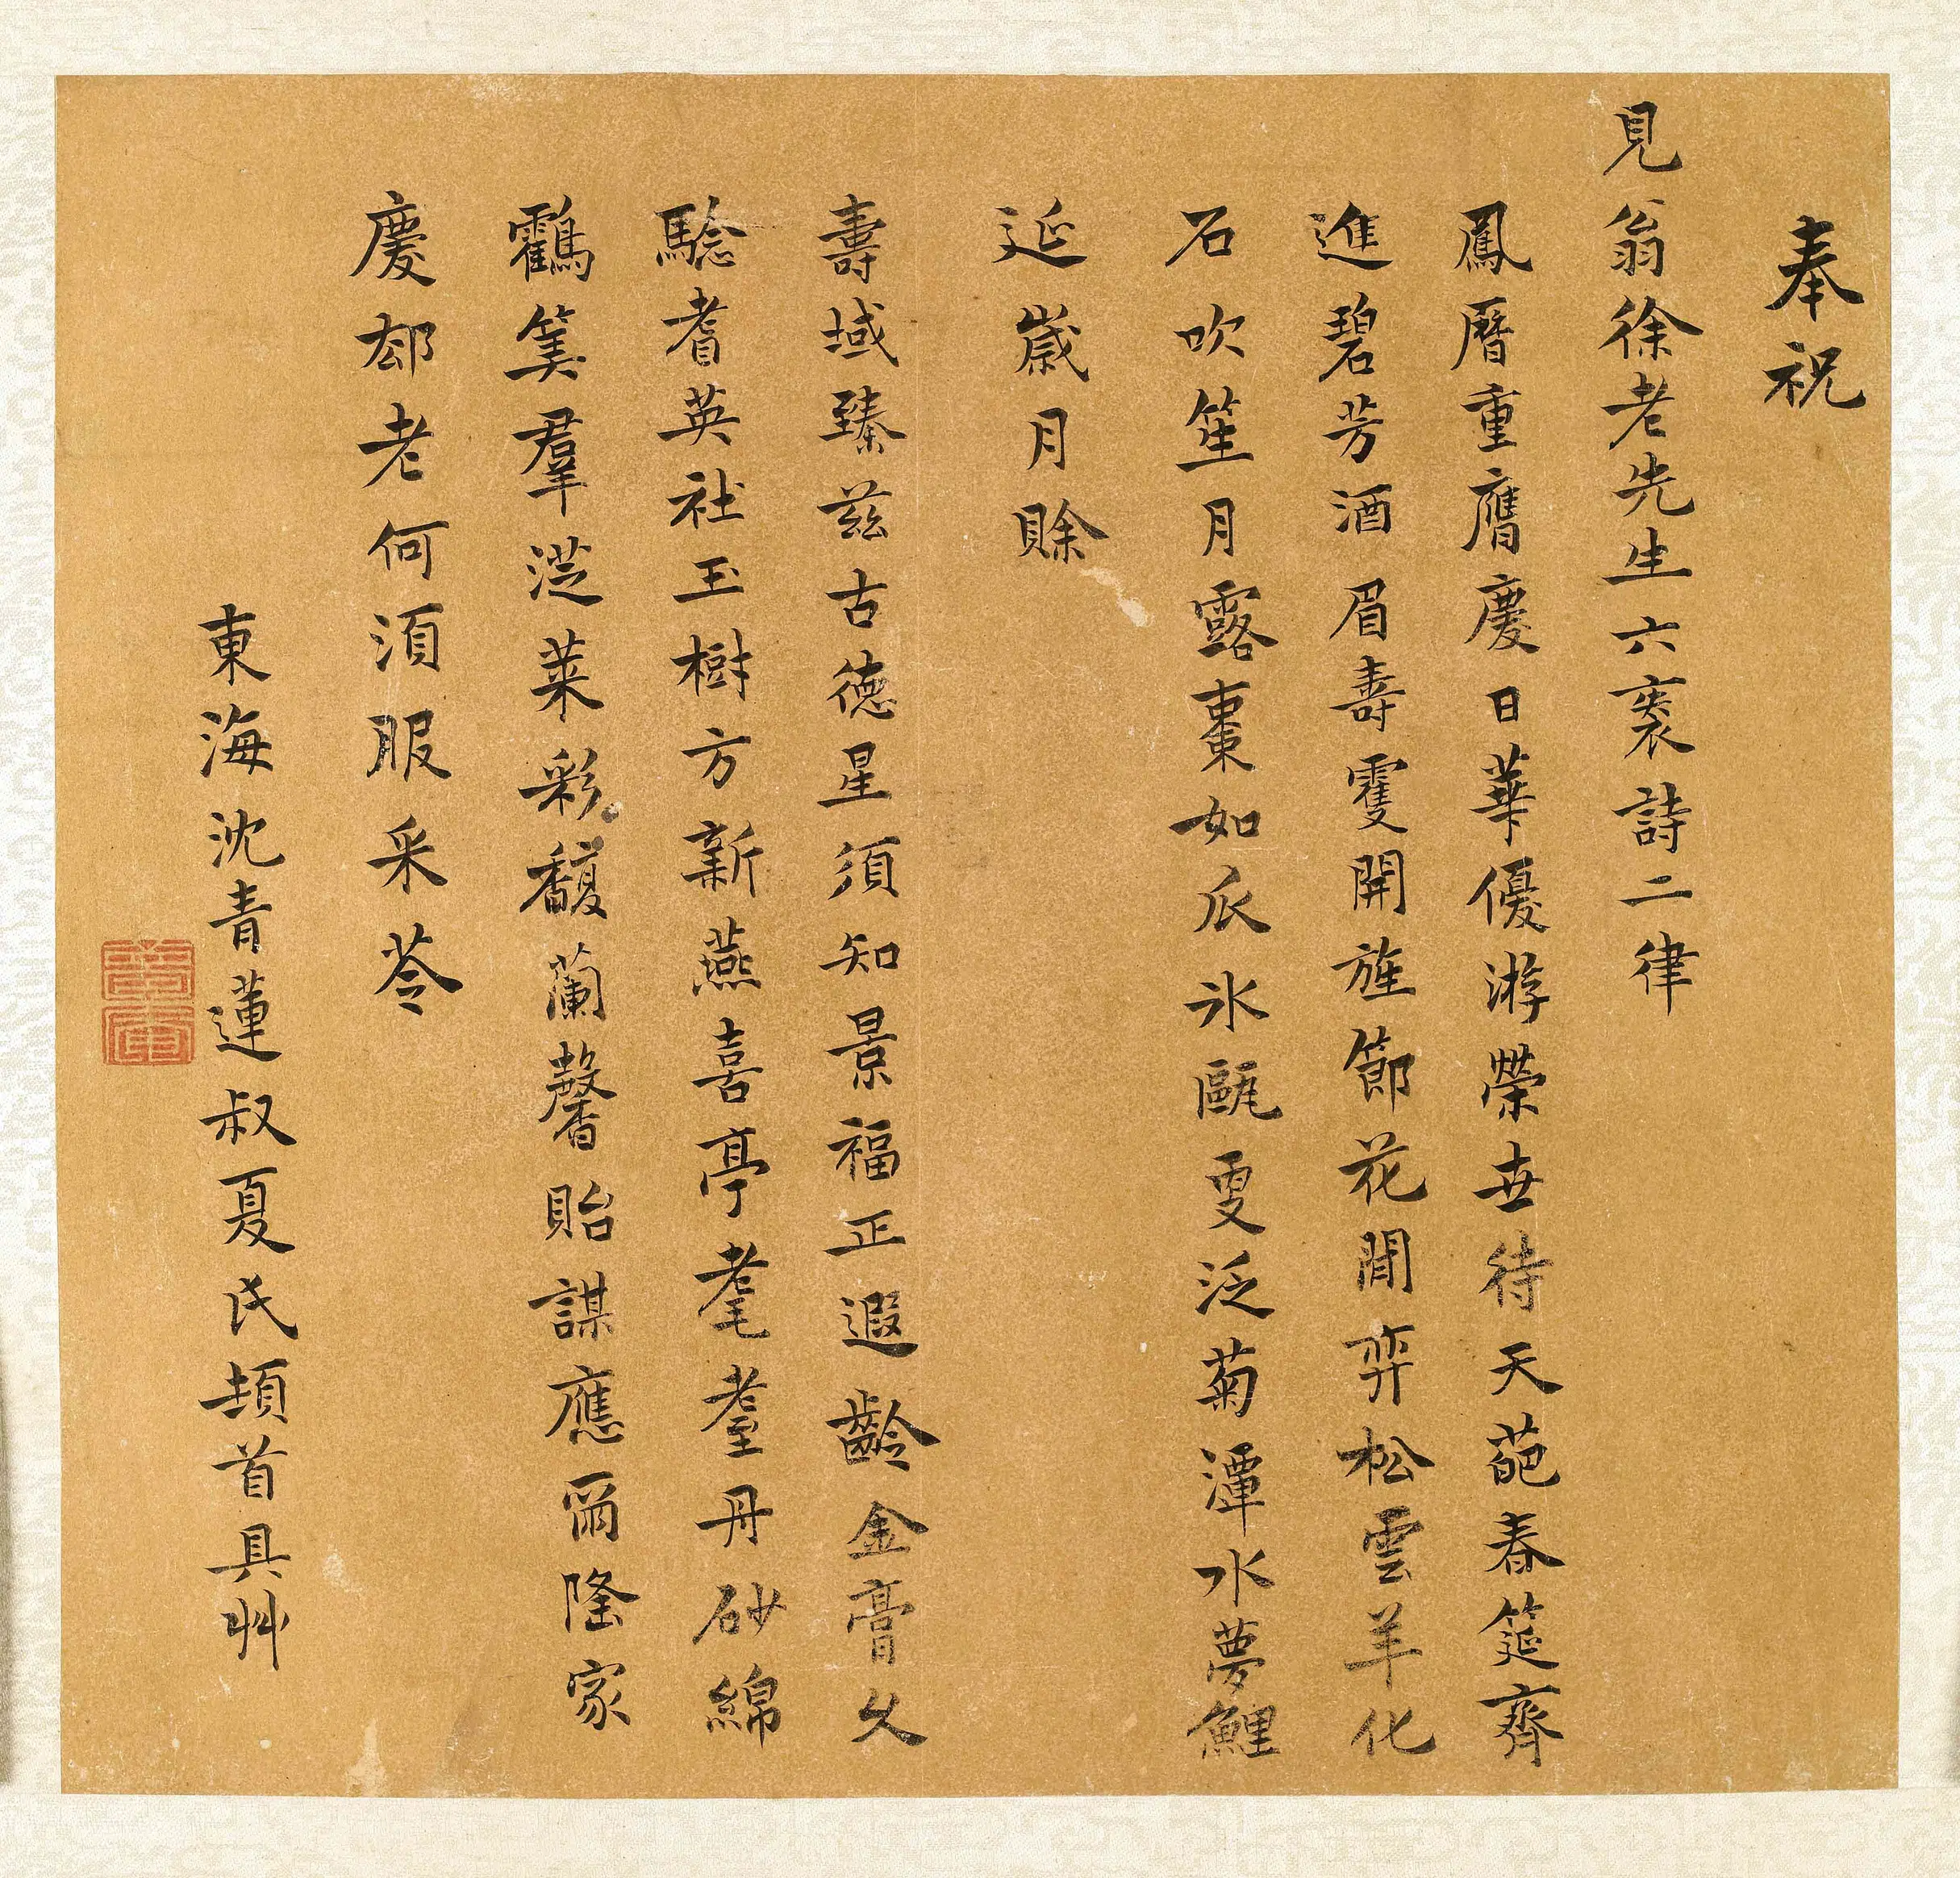 奉祝
見翁徐老先生六袠詩二律
鳳曆重膺慶日華優游榮世待天葩春筵齊
進碧芳酒眉壽雙開旌節花閒弈松雲羊化
石吹笙月露棗如瓜冰甌雯泛菊潭水夢鯉
延歲月賒
壽域臻茲古德星須知景福正遐齡金膏久
駖耆英社玉樹方新燕喜亭耄耋丹砂綿
鶴筭羣漇萊彩馥蘭馨貽謀應爾隆家
慶郄老何須服采苓
東海沈青蓮叔夏氏頓首具艸